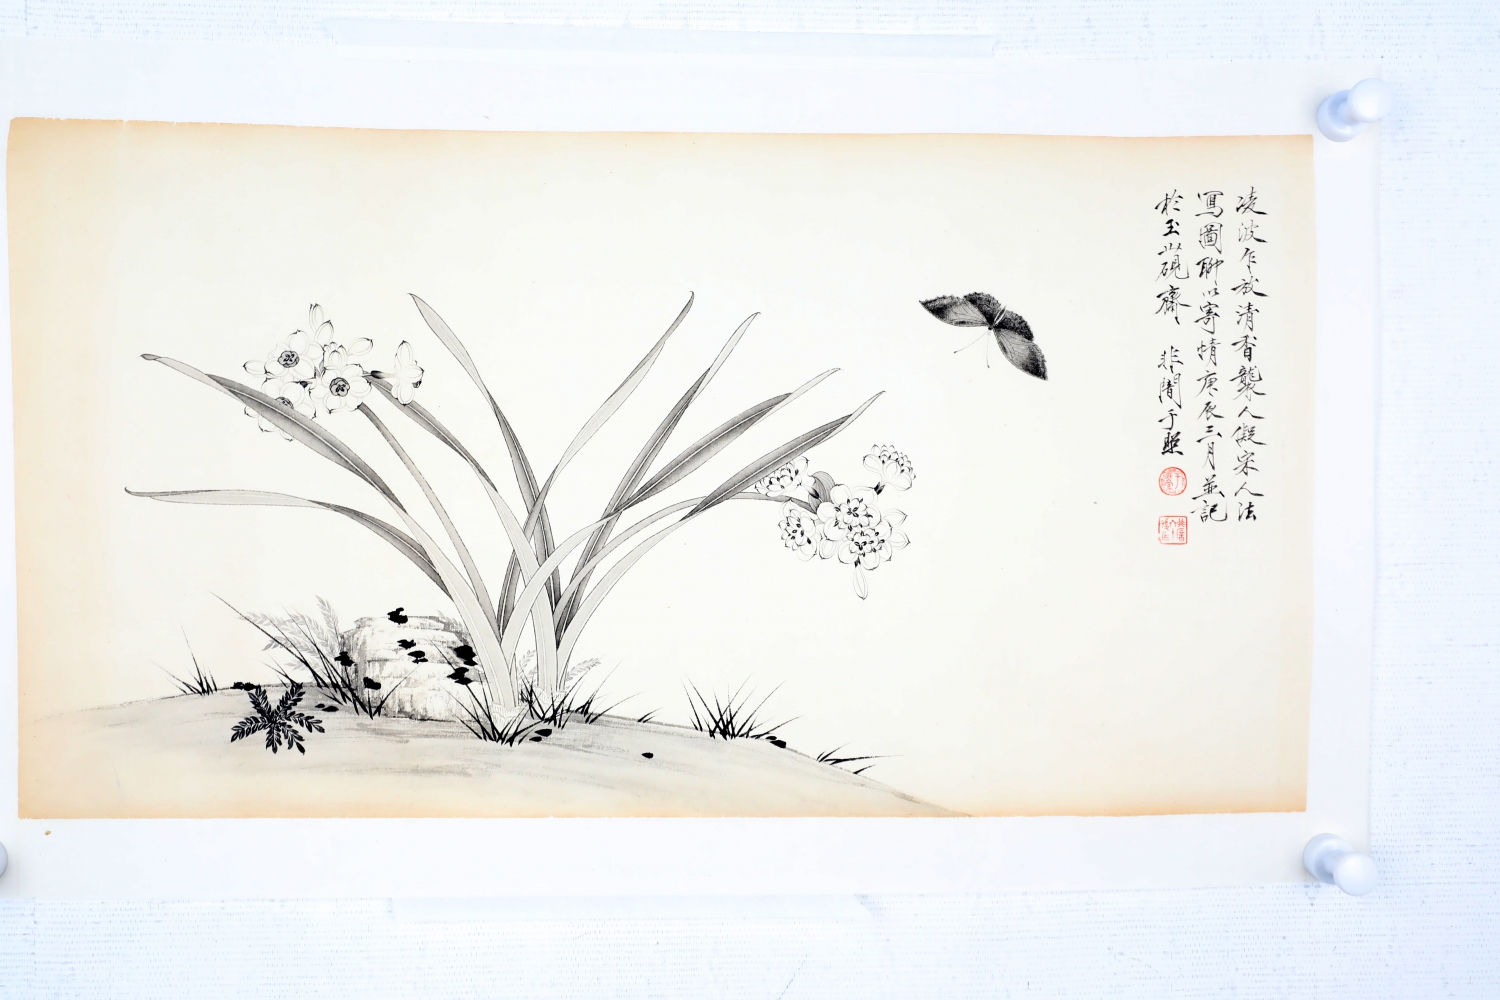 凌波乍放清香襲人儗宋人法
寫圖聊以寄情庚辰三月並記
於玉山硯齋 非闇于照